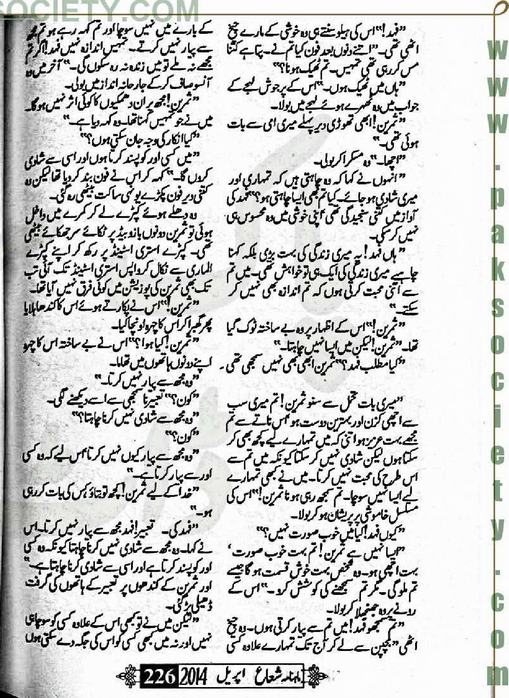 SOCIETY.COM
www.paksociety.com
”فہد!“ اس کی ہیلو سنتے ہی وہ خوشی کے مارے چیخ
اٹھی تھی۔ ”اتنے دنوں بعد فون کیا تم نے۔ پتا ہے کتنا
مس کر رہی تھی تمہیں۔ تم ٹھیک ہو نا؟“
”ہاں میں ٹھیک ہوں۔“ اس کے پرجوش لہجے کے
جواب میں وہ ٹھہرے ہوئے لہجے میں بولا۔
”ثمرین! ابھی تھوڑی دیر پہلے میری امی سے بات
ہوئی تھی۔“
”اچھا۔“ وہ مسکرا کر بولی۔
”انہوں نے کہا کہ وہ چاہتی ہیں کہ تمہاری اور
میری شادی ہو جائے۔ کیا تم بھی ایسا چاہتی ہو؟“ فہد کی
آواز میں کتنی سنجیدگی تھی اپنی خوشی میں وہ محسوس ہی
نہیں کر سکی۔
”ہاں فہد! یہ میری زندگی کی بہت بڑی بلکہ کہنا
چاہیے میری زندگی کی ایک ہی تو خواہش تھی۔ میں تم
سے اتنی محبت کرتی ہوں کہ تم اندازہ بھی نہیں کر
سکتے۔“
”ثمرین!“ اس کے اظہار پر وہ بے ساختہ ٹوک گیا
تھا۔ ”ثمرین! لیکن میں ایسا نہیں چاہتا۔“
”کیا مطلب فہد؟“ ثمرین ابھی بھی نہیں سمجھی تھی۔
”میری بات تحمل سے سنو ثمرین! تم میری سب
سے اچھی کزن اور بہترین دوست ہو اس ناتے سے تم
مجھے بہت عزیز ہو اتنی کہ میں تمہارے لیے کچھ بھی کر
سکتا ہوں لیکن شادی نہیں کر سکتا کیونکہ میں تم سے
اس طرح کی محبت نہیں کرتا۔ میں نے کبھی تمہارے
لیے ایسا نہیں سوچا۔ تم سمجھ رہی ہو نا ثمرین!“ اس کی
مسلسل خاموشی پر پریشان ہو کر بولا۔
”کیوں فہد! کیا میں خوب صورت نہیں؟“
”ایسا نہیں ہے ثمرین! تم بہت خوب صورت،
بہت اچھی ہو۔ وہ شخص بہت خوش قسمت ہو گا جسے
تم ملو گی۔ مگر تم سمجھنے کی کوشش کرو۔“ اس کے
رونے پر وہ جھنجھلا کر بولا۔
”تم سمجھو فہد! میں تم سے پیار کرتی ہوں۔ وہ چیخ
اٹھی ”بچپن سے لے کر آج تک تمہارے علاوہ کسی
کے بارے میں نہیں سوچا اور تم کہہ رہے ہو تم مجھ
سے پیار نہیں کرتے۔ تمہیں اندازہ نہیں فہد! اگر تم
مجھے نہ ملے تو میں زندہ نہ رہ سکوں گی۔“ آخر میں وہ
آنسو صاف کر کے جارحانہ انداز میں بولی۔
”ثمرین! مجھ پر ان دھمکیوں کا کوئی اثر نہیں ہو گا۔
میں نے جو تمہیں کہنا تھا۔ وہ کہہ دیا ہے۔“
”کیا انکار کی وجہ جان سکتی ہوں؟“
”میں کسی اور کو پسند کرتا ہوں اور اسی سے شادی
کروں گا۔“ کہہ کر اس نے فون بند کر دیا تھا لیکن وہ
کتنی دیر فون پکڑے یونہی ساکت بیٹھی رہ گئی۔
وہ دھلے ہوئے کپڑے لے کر کمرے میں داخل
ہوئی تو ثمرین دونوں بازو بیڈ پر ٹکائے سر جھکائے بیٹھی
تھی۔ کپڑے استری اسٹینڈ پر رکھ کر اپنے کپڑے
الماری سے نکال کر واپس استری اسٹینڈ تک آئی تب
تک بھی ثمرین کی پوزیشن میں کوئی فرق نہیں آیا تھا۔
”ثمرین!“ اس نے پکارتے ہوئے اس کا کندھا ہلایا
پھر گھبرا کر اس کا چہرہ اونچا کیا۔
”ثمرین! کیا ہوا؟“ اس نے بے ساختہ اس کا چہرہ
اپنے دونوں ہاتھوں میں تھاما۔
”وہ مجھ سے پیار نہیں کرتا۔“
”کون؟“ تعبیر ناسمجھی سے اسے دیکھنے لگی۔
”وہ مجھ سے شادی نہیں کرنا چاہتا؟“
”کون؟“
”وہ مجھ سے پیار کیوں نہیں کرتا اس لیے کہ وہ کسی
اور سے پیار کرتا ہے۔“
”خدا کے لیے ثمرین! کچھ تو بتاؤ کس کی بات کر رہی
ہو۔“
”فہد کی۔ تعبیر! فہد مجھ سے پیار نہیں کرتا۔ اس
نے کہا۔ وہ مجھ سے شادی نہیں کرنا چاہتا کیونکہ وہ کسی
اور کو پسند کرتا ہے اور اسی سے شادی کرنا چاہتا ہے۔“
اور ثمرین کے کندھوں پر تعبیر کے ہاتھوں کی گرفت
ڈھیلی پڑ گئی۔
”لیکن میں نے تو کبھی اس کے علاوہ کسی کو سوچا ہی
نہیں اور نہ میں کبھی کسی کو اس کی جگہ دے سکتی ہوں
ماہنامہ شعاع اپریل 2014 226